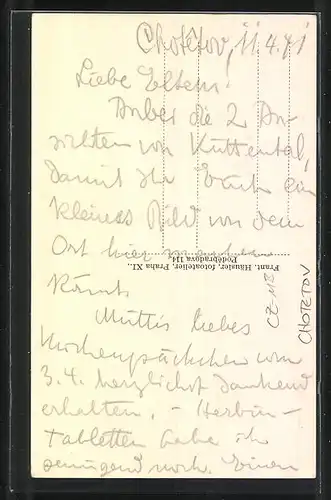 Chotětov, 11.4.41
Liebe Eltern!
Anbei die 2 An-
sichten von Kuttental,
damit Ihr Euch ein
kleines Bild von dem
Ort hier machen
könnt.
Muttis liebes
Wochenpäckchen vom
3.4. herzlichst dankend
erhalten. - Herbin-
Tabletten habe ich
genügend noch. Einen
Frant. Häusler, fotoatelier, Praha XI.,
Poděbradova 114.
CZ-MB
CHOTETOV